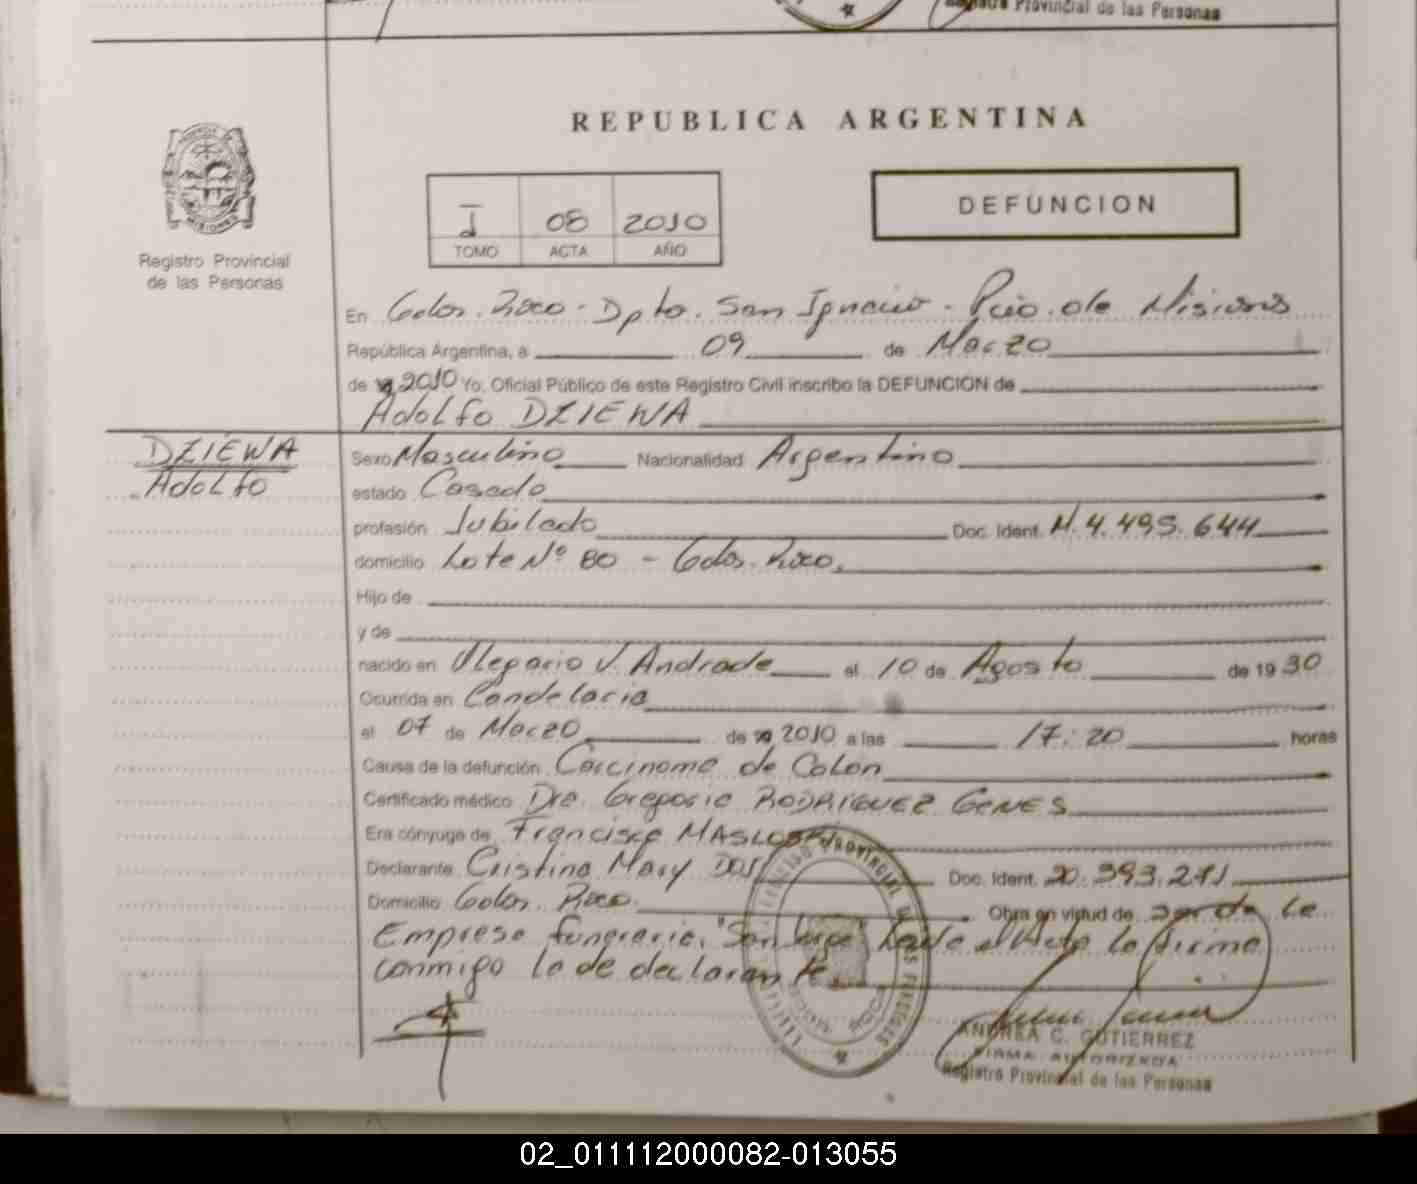 Registro Provincial de las Personas
REPUBLICA ARGENTINA
I 08 2010
TOMO ACTA AÑO
DEFUNCION
MISIONES
Registro Provincial
de las Personas
En Gdor. Roco - Dpto. San Ignacio - Pcio. de Misiones
República Argentina, a 09 de Marzo
de 2010 Yo, Oficial Público de este Registro Civil inscribo la DEFUNCION de
Adolfo DZIEWA
DZIEWA
Adolfo
Sexo Masculino Nacionalidad Argentino
estado Casado
profesión Jubilado Doc. Ident. M. 4.495.644
domicilio Lote Nº 80 - Gdor. Roco.
Hijo de
y de
nacido en Olegario V. Andrade el 10 de Agosto de 1930
Ocurrida en Candelaria
el 07 de Marzo de 2010 a las 17:20 horas
Causa de la defunción Carcinoma de Colon
Certificado médico Dra. Gregoria RODRIGUEZ GENES
Era cónyuge de Francisca
Declarante Cristina Mary DOS Doc. Ident. 20.393.271
Domicilio Gdor. Roca Obra en virtud de ser de la
Empresa funeraria. "San Jorge" Leída el Acta la firma
conmigo la declarante.
REGISTRO PROVINCIAL DE LAS PERSONAS
ANDREA C. GUTIERREZ
FIRMA AUTORIZADA
Registro Provincial de las Personas
02_011112000082-013055